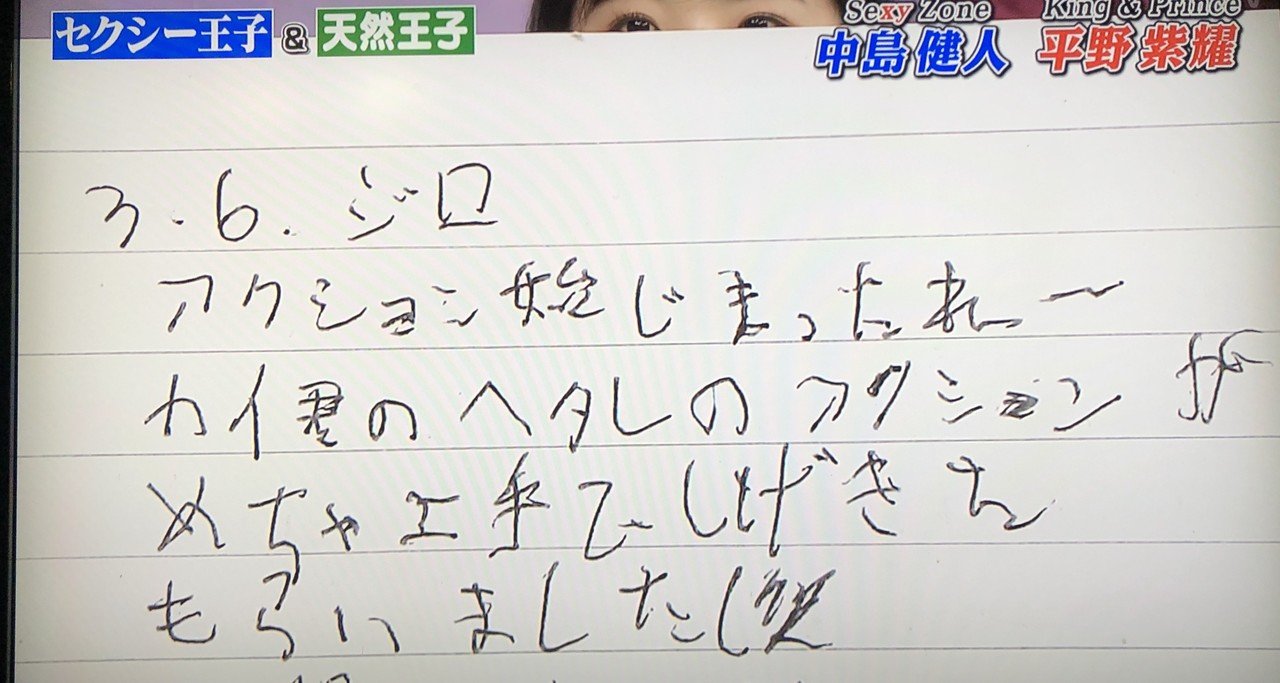 セクシー王子 & 天然王子
Sexy Zone King & Prince
中島健人 平野紫耀
3.6.ジロ
アクション始じまったねー
カイ君のヘタレのアクションが
めちゃ上手でしげきを
もらいました